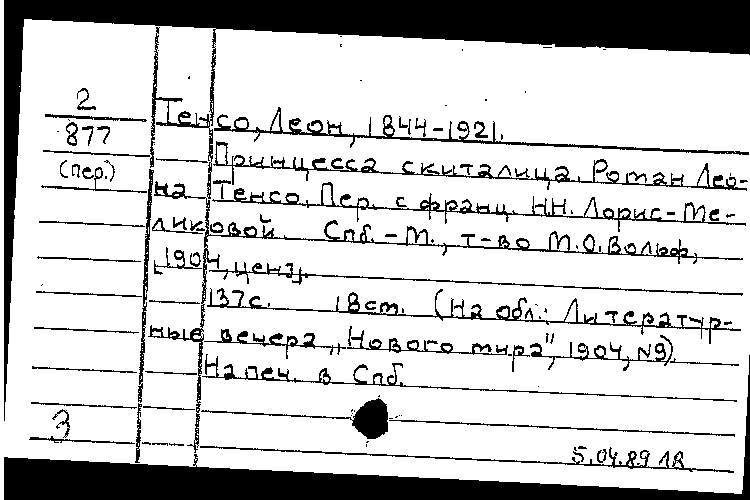 2
877
(пер.)
Тенсо, Леон, 1844-1921.
Принцесса скиталица. Роман Лео-
на Тенсо. Пер. с франц. Н.Н. Лорис-Ме-
ликовой. Спб.-М., т-во М.О. Вольф,
[1904, ценз].
137с. 18см. (На обл.: Литератур-
ные вечера „Нового мира", 1904, №9).
Напеч. в Спб.
3
5.04.89